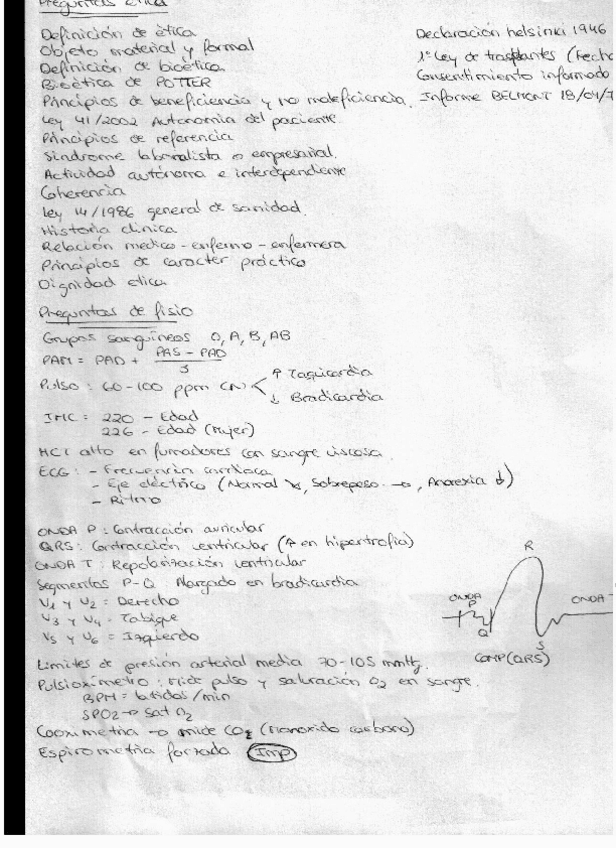 Preguntas ética
Definición de ética
Objeto material y formal
Definición de bioética
Bioética de POTTER
Principios de beneficiencia y no maleficiencia.
Ley 41/2002 Autonomía del paciente.
Principios de referencia
Síndrome laboralista o empresarial.
Actividad autónoma e interdependiente
Coherencia
Ley 14/1986 general de sanidad.
Historia clínica
Relación medico - enfermo - enfermera
Principios de caracter práctico
Dignidad etica
Declaración helsinki 1946
1ª Ley de trasplantes (Fecha
Consentimiento informado
Informe BELMONT 18/04/7
Preguntas de fisio
Grupos sanguíneos O, A, B, AB
PAM = PAD + PAS - PAD
3
Pulso : 60-100 ppm (N) ↑ Taquicardia
↓ Bradicardia
IMC = 220 - Edad
226 - Edad (Mujer)
HCT alto en fumadores con sangre viscosa.
ECG : - Frecuencia cardíaca
- Eje electrico (Normal ↘, Sobrepeso →, Anorexia ↓)
- Ritmo
ONDA P : Contracción auricular
QRS : Contracción ventricular (↑ en hipertrofia)
ONDA T : Repolarización ventricular
Segmentos P-Q Alargado en bradicardia
V1 y V2 = Derecho
V3 y V4 - Tabique
V5 y V6 = Izquierdo
R
ONDA P
Q
S
ONDA T
COMP(QRS)
Limites de presión arterial media 70-105 mmHg.
Pulsioxímetro : Mide pulso y saturación O2 en sangre.
BPM = latidos/min
SPO2 → Sat O2
Cooximetria → mide CO (monoxido carbono)
Espirometria forzada Imp